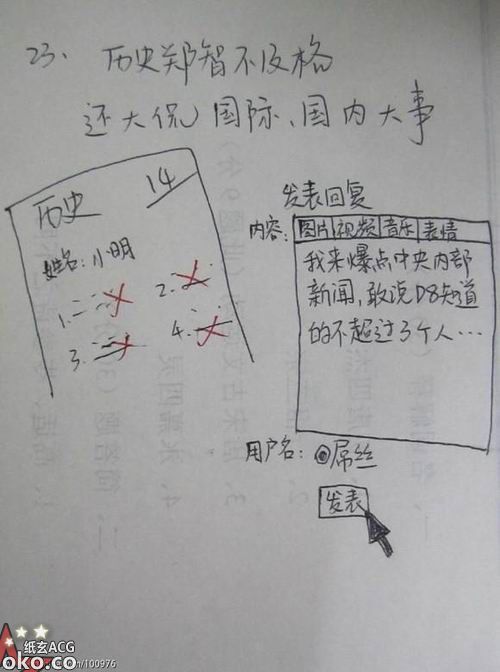 23、历史郑智不及格
还大侃国际、国内大事
历史
14
姓名：小明
1.
2.
3.
4.
发表回复
内容：
图片 视频 音乐 表情
我来爆点中央内部
新闻，敢说D8知道
的不超过3个人…
用户名：
屌丝
发表
纸玄ACG
/100976
oko.co